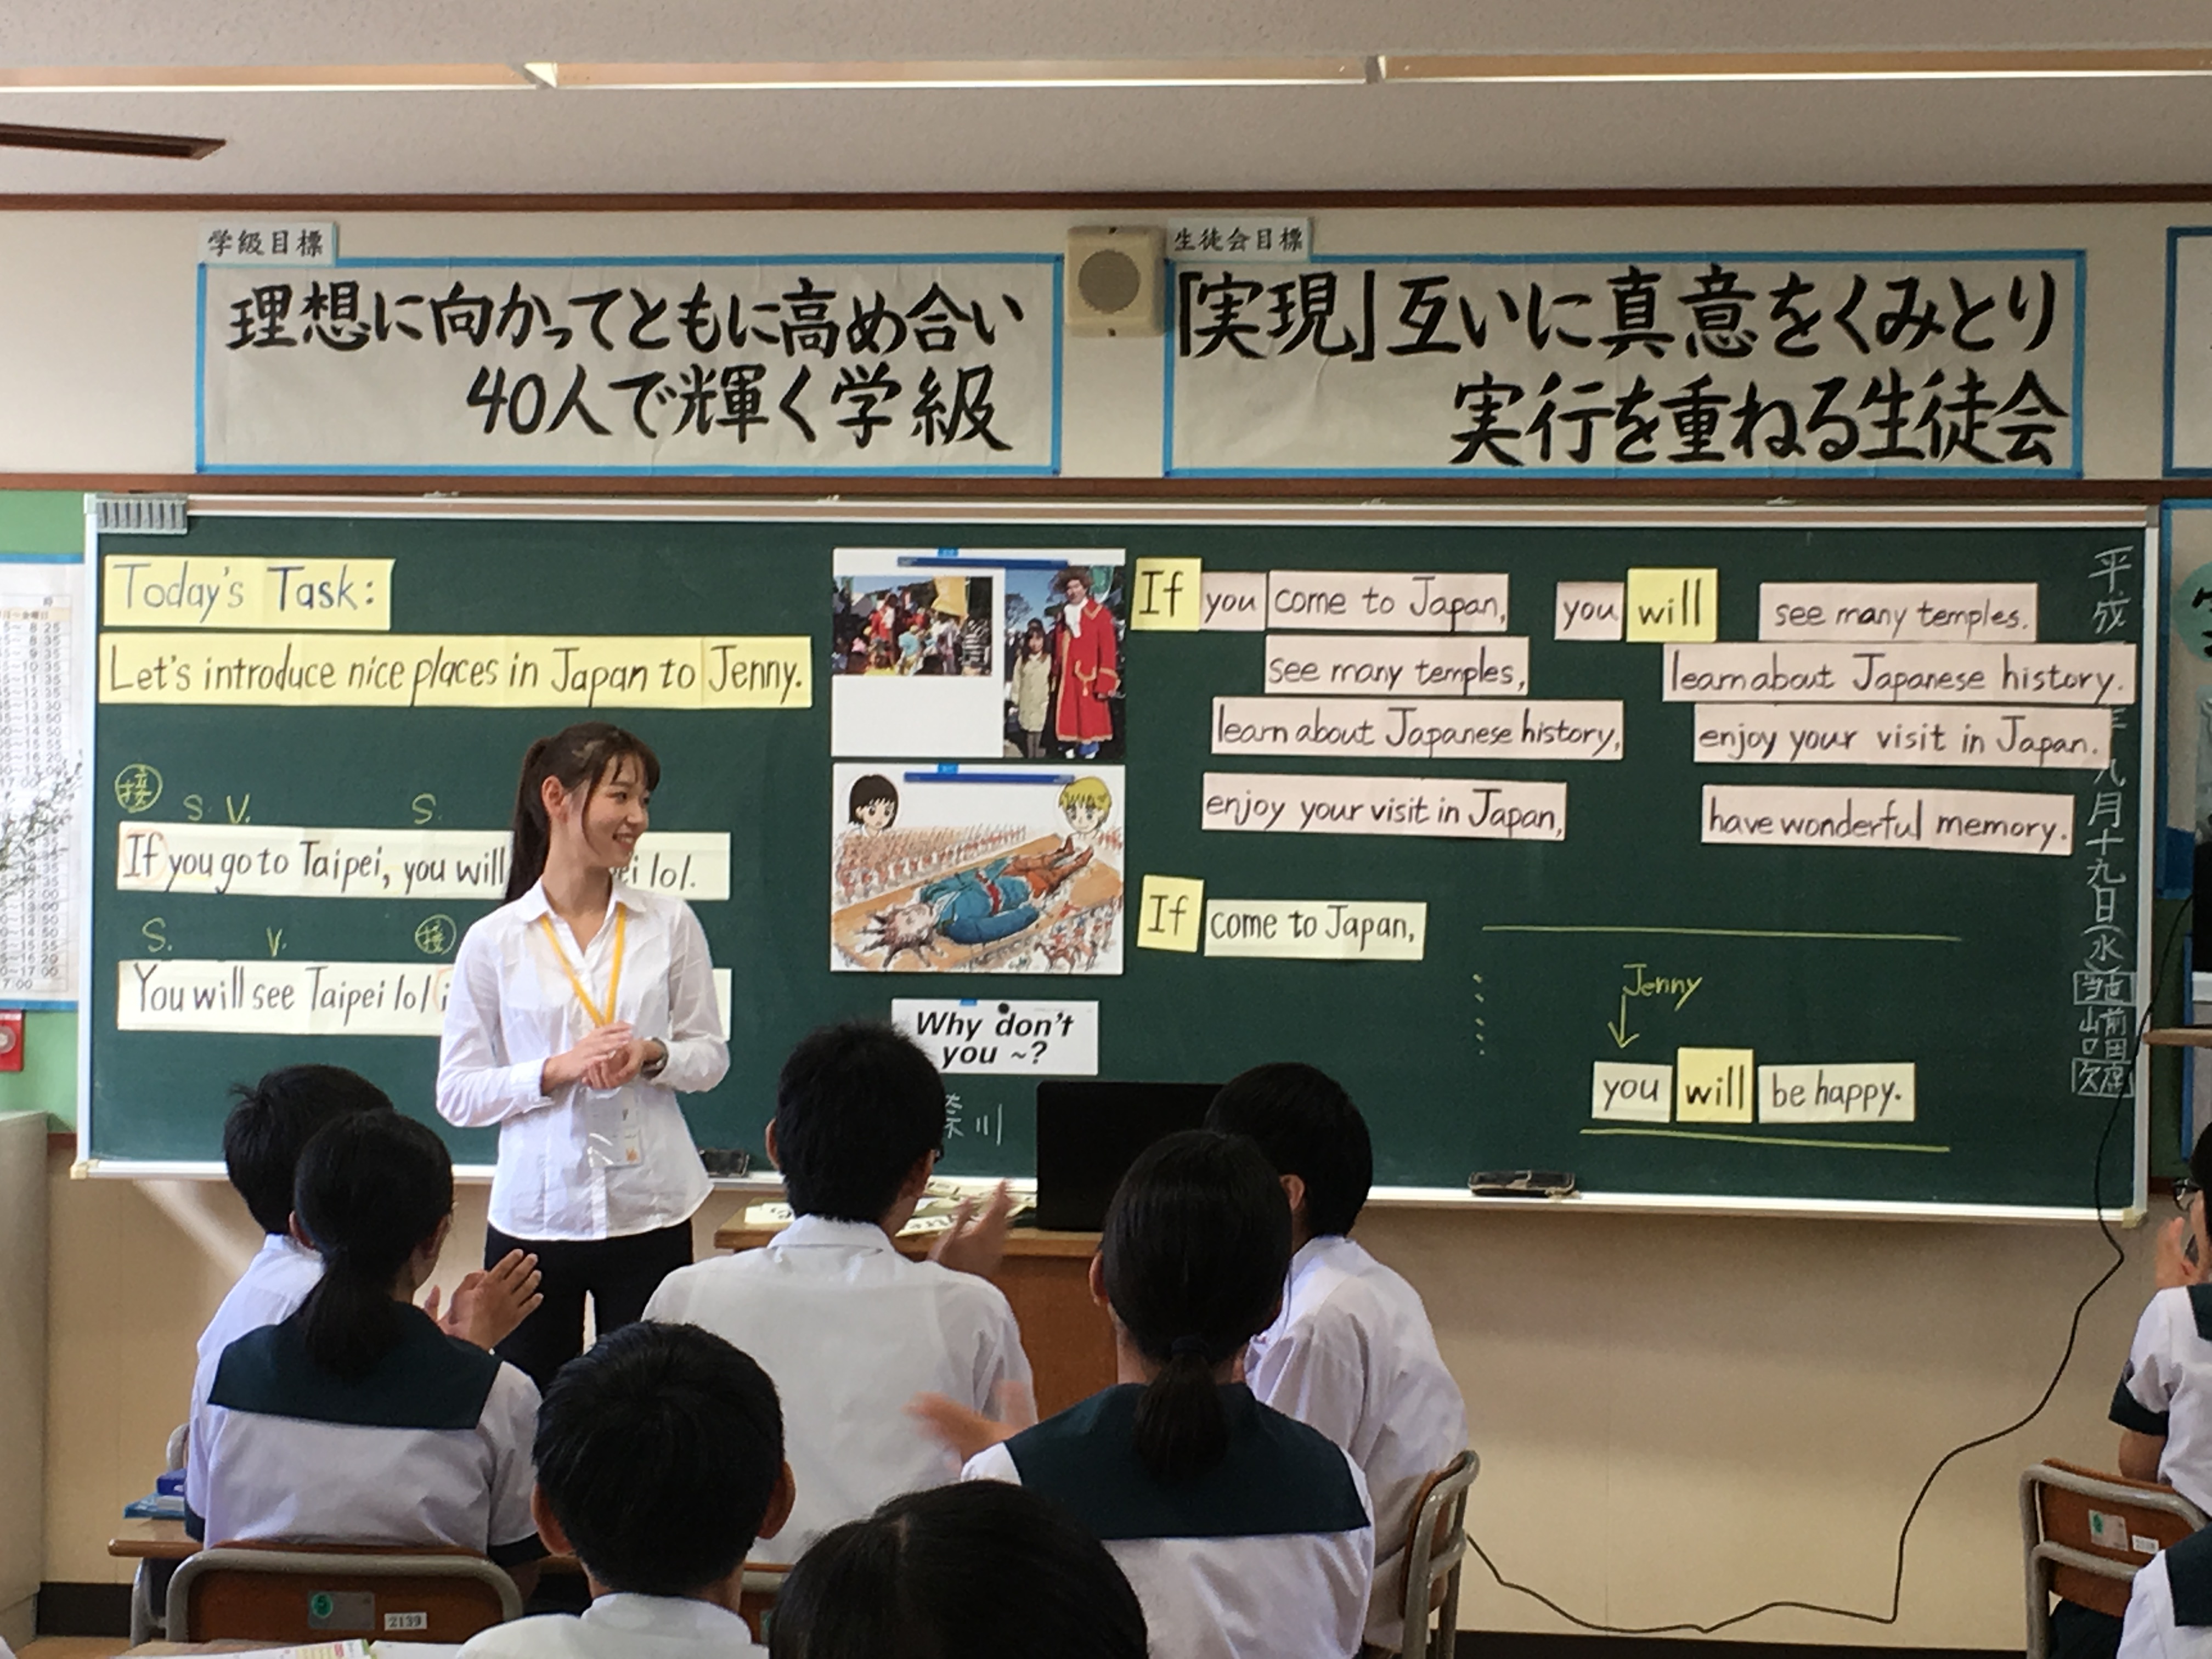 学級目標
理想に向かってともに高め合い
40人で輝く学級
生徒会目標
「実現」互いに真意をくみとり
実行を重ねる生徒会
Today's Task:
Let's introduce nice places in Japan to Jenny.
接
S. V. S.
If you go to Taipei, you will
ei lol.
S. V. 接
You will see Taipei lol i
Why don't
you ~?
奈川
If you come to Japan, you will see many temples.
see many temples, learn about Japanese history.
learn about Japanese history, enjoy your visit in Japan.
enjoy your visit in Japan, have wonderful memory.
If come to Japan,
Jenny
you will be happy.
平成
年九月十九日(水)
前田
山口
欠席
2139